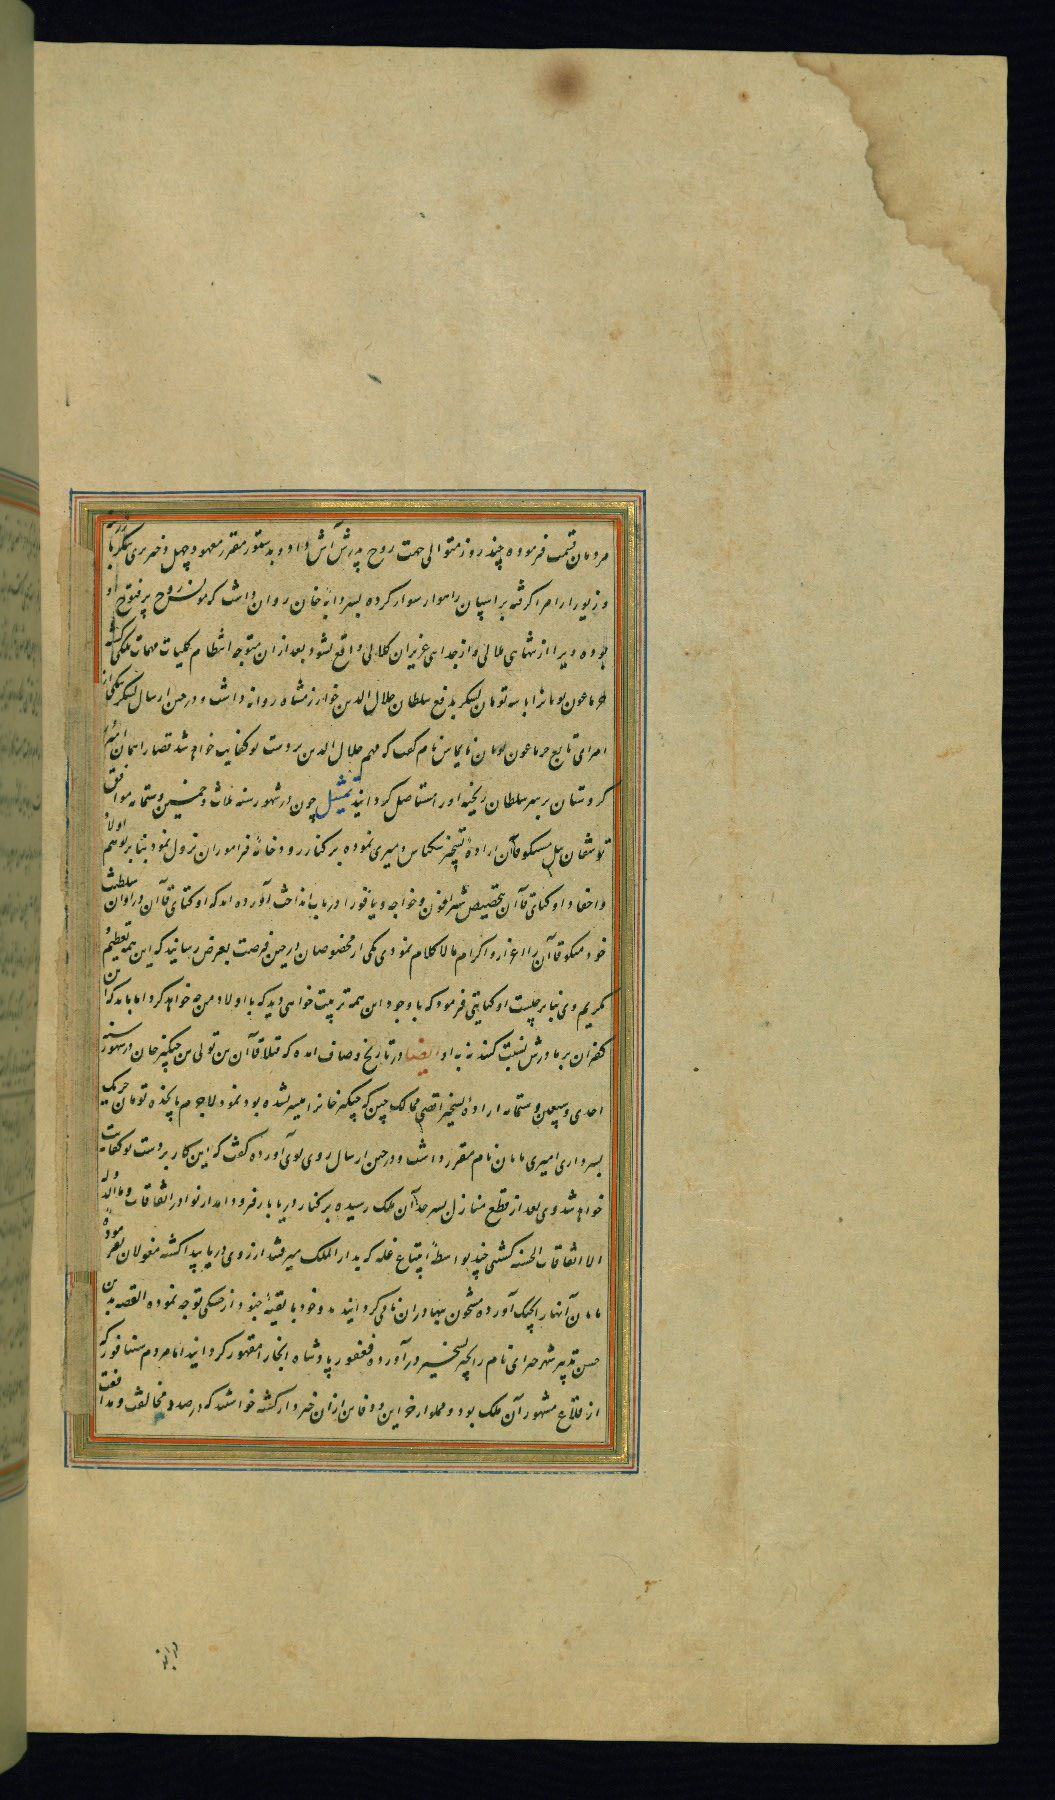 مردمان قسمت فرموده چند روز متوالی جهت روح پدرش آش داد و بدستور مقرر معهود چهل دختر پری پیکر با
و زیور ارام گرفته بر اسپان راهوار سوار کرده بسردابهٔ خان روان داشت که مونس روح پر فتوح او
بوده ویرا از تنهایی ملالی و از جدایی عزیزان کلالی واقع نشود بعد از آن متوجه انتظام کلیات مهمات ملکی گشته
جرماغون نویانرا با سه تومان لشکر بدفع سلطان جلال الدین خوارزمشاه روانه داشت و در حین ارسال لشکر یکی از
امرای تابع جرماغون نویان تایماس نام گفت که مهم جلال الدین بر دست تو کفایت خواهد شد قضا را همان
کردستان بر سر سلطان ریخته او را مستاصل گردانید تمثیل چون در شهور سنه ثلاث و خمسین و ستمائه موافق
توشقان ییل منکو قاآن ارادهٔ تسخیر ننکیاس و میری نموده بر کنار رودخانهٔ قراموران نزول نمود بنابر توهم اولاد
و احفاد اوکتای قاآن بتخصیص شیرامون و خواجه و یاقو را در آب انداخت آورده اند که اوکتای قاآن در اوان سلطنت
خود منکو قاآن را اعزاز و اکرام مالا کلام نمودی یکی از مخصوصان در حین فرصت بعرض رسانید که این همه تعظیم و
تکریم وی بنابر چیست اوکتای فرمود که با وجود این همه تربیت خواهی دید که با اولاد من چه خواهد کرد اما باید که این
کفران بر مادرش نسبت کنند نه به او ایضا در تاریخ وصاف آمده که قبلا قاآن بن تولی بن چنگیز خان در شهور سنه
احدی و سبعین و ستمائه ارادهٔ تسخیر اقصی ممالک چین که چنگیز خانرا میسر نشده بود نمود لاجرم پانزده تومان چریک
بسرداری امیری بایان نام مقرر داشت و در حین ارسال روی بوی آورده گفت که این کار بر دست تو کفایت
خواهد شد وی بعد از قطع منازل بسرحد آن ملک رسیده بر کنار دریا بار فرود آمد از نوادر اتفاقات و ما الدولة
الا اتفاقات الحسنه کشتی چند بواسطهٔ ابتیاع غله که بدار الملک میرفتند از روی دریا پیدا گشته مغولان بفرموده
بایان آنها را بچنگ آورده مشحون ببهادران نامی گردانیدند و خود با بقیهٔ جنود از خشکی توجه نموده القصه بدین
حسن تدبیر شهر خنزای نام را بحیز تسخیر درآورده فغفور پادشاه آنجا را مقهور گردانید اما مردم سنیانفور که
از قلاع مشهور آن ملک بود و مملو از خواین و دفاین از آن خبردار گشته خواستند که در صدد مخالفت و مدافعت